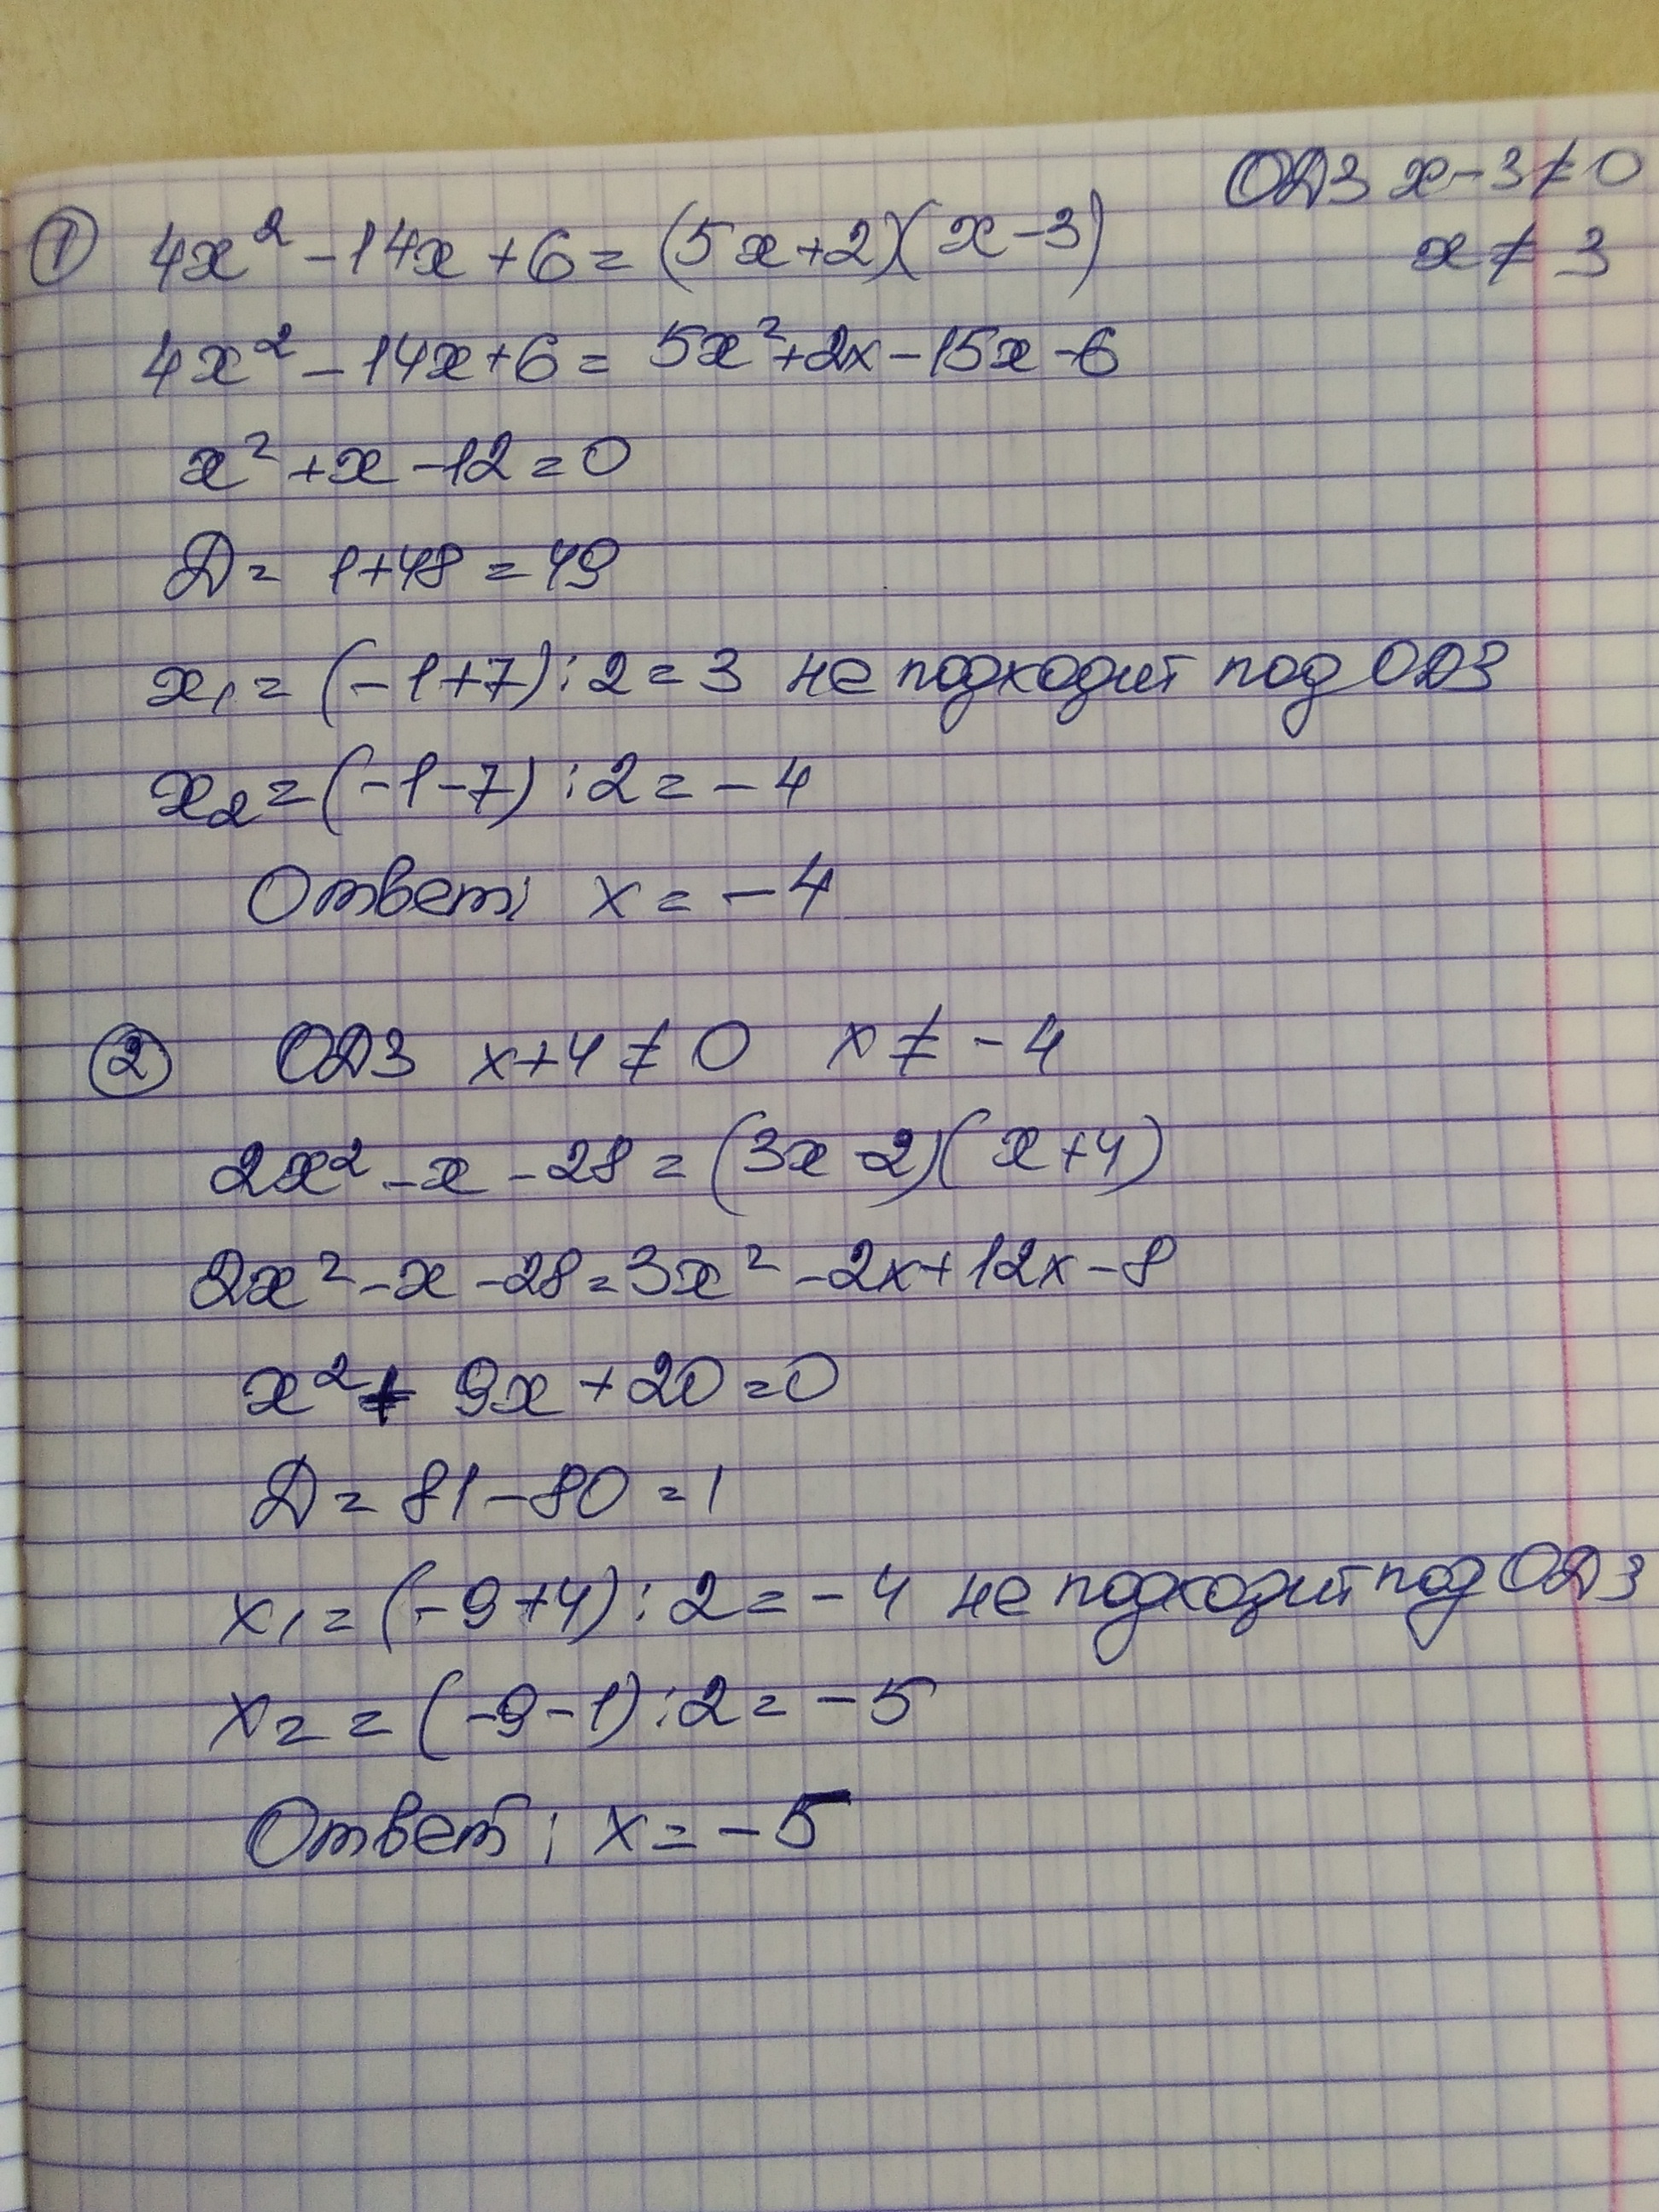 ОДЗ x-3≠0
① 4x² - 14x + 6 = (5x+2)(x-3)
x ≠ 3
4x² - 14x + 6 = 5x² + 2x - 15x - 6
x² + x - 12 = 0
Д = 1+48 = 49
x₁ = (-1+7) : 2 = 3 не подходит под ОДЗ
x₂ = (-1-7) : 2 = -4
Ответ: x = -4
② ОДЗ x+4 ≠ 0 x ≠ -4
2x² - x - 28 = (3x-2)(x+4)
2x² - x - 28 = 3x² - 2x + 12x - 8
x² + 9x + 20 = 0
Д = 81 - 80 = 1
x₁ = (-9+4) : 2 = -4 не подходит под ОДЗ
x₂ = (-9-1) : 2 = -5
Ответ: x = -5